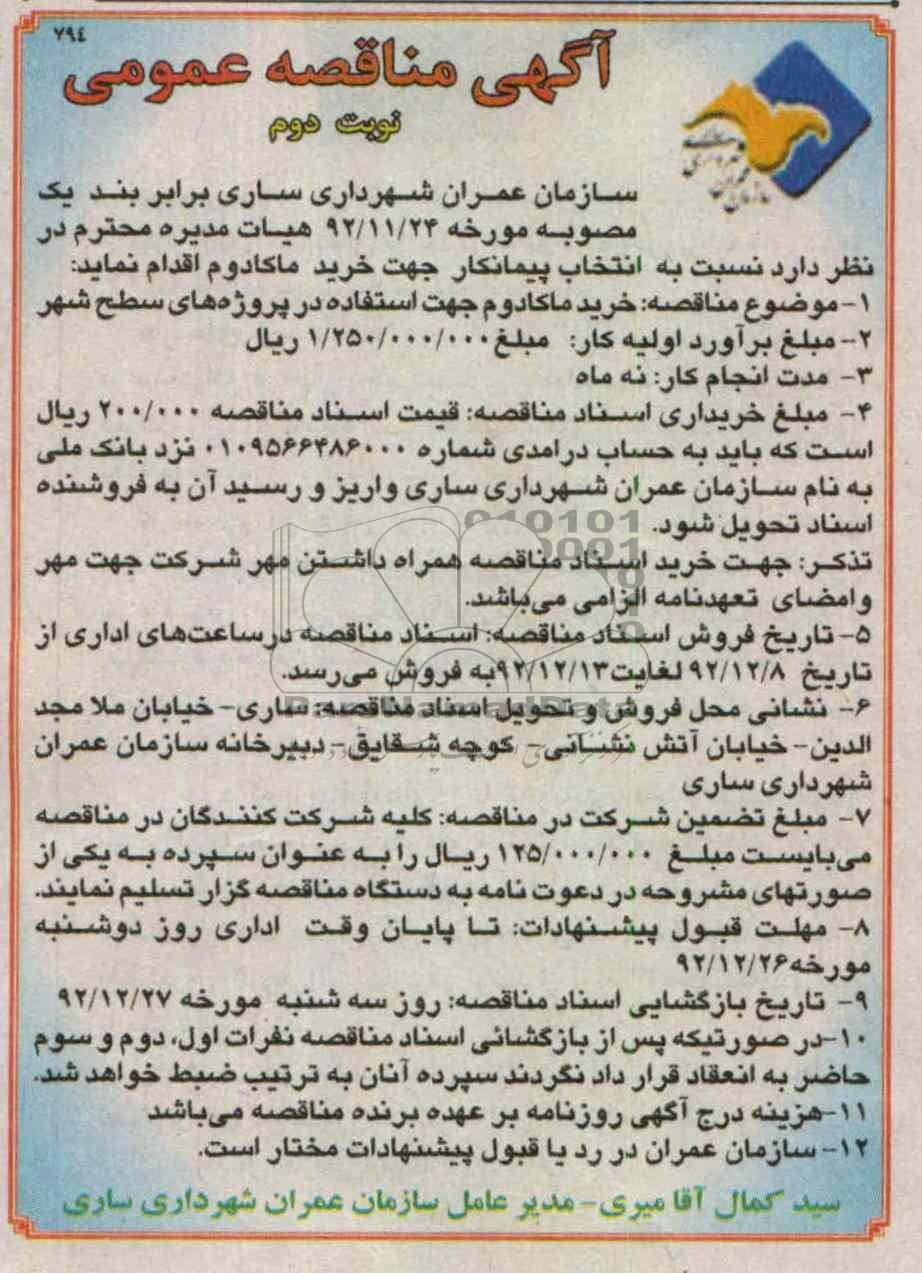 ۷۹۴
آگهی مناقصه عمومی
نوبت دوم
سازمان عمران شهرداری ساری برابر بند یک
مصوبه مورخه ۹۲/۱۱/۲۴ هیات مدیره محترم در
نظر دارد نسبت به انتخاب پیمانکار جهت خرید ماکادوم اقدام نماید:
۱-موضوع مناقصه: خرید ماکادوم جهت استفاده در پروژه‌های سطح شهر
۲- مبلغ برآورد اولیه کار: مبلغ ۱/۲۵۰/۰۰۰/۰۰۰ ریال
۳- مدت انجام کار: نه ماه
۴- مبلغ خریداری اسناد مناقصه: قیمت اسناد مناقصه ۲۰۰/۰۰۰ ریال
است که باید به حساب درامدی شماره ۰۱۰۹۵۶۶۴۸۶۰۰۰ نزد بانک ملی
به نام سازمان عمران شهرداری ساری واریز و رسید آن به فروشنده
اسناد تحویل شود.
تذکر: جهت خرید اسناد مناقصه همراه داشتن مهر شرکت جهت مهر
وامضای تعهدنامه الزامی می‌باشد.
۵- تاریخ فروش اسناد مناقصه: اسناد مناقصه درساعت‌های اداری از
تاریخ ۹۲/۱۲/۸ لغایت ۹۲/۱۲/۱۳به فروش می‌رسد.
۶- نشانی محل فروش و تحویل اسناد مناقصه: ساری- خیابان ملا مجد
الدین- خیابان آتش نشانی- کوچه شقایق- دبیرخانه سازمان عمران
شهرداری ساری
۷- مبلغ تضمین شرکت در مناقصه: کلیه شرکت کنندگان در مناقصه
می‌بایست مبلغ ۱۲۵/۰۰۰/۰۰۰ ریال را به عنوان سپرده به یکی از
صورتهای مشروحه در دعوت نامه به دستگاه مناقصه گزار تسلیم نمایند.
۸- مهلت قبول پیشنهادات: تا پایان وقت اداری روز دوشنبه
مورخه۹۲/۱۲/۲۶
۹- تاریخ بازگشایی اسناد مناقصه: روز سه شنبه مورخه ۹۲/۱۲/۲۷
۱۰-در صورتیکه پس از بازگشائی اسناد مناقصه نفرات اول، دوم و سوم
حاضر به انعقاد قرار داد نگردند سپرده آنان به ترتیب ضبط خواهد شد.
۱۱-هزینه درج آگهی روزنامه بر عهده برنده مناقصه می‌باشد
۱۲- سازمان عمران در رد یا قبول پیشنهادات مختار است.
سید کمال آقا میری- مدیر عامل سازمان عمران شهرداری ساری